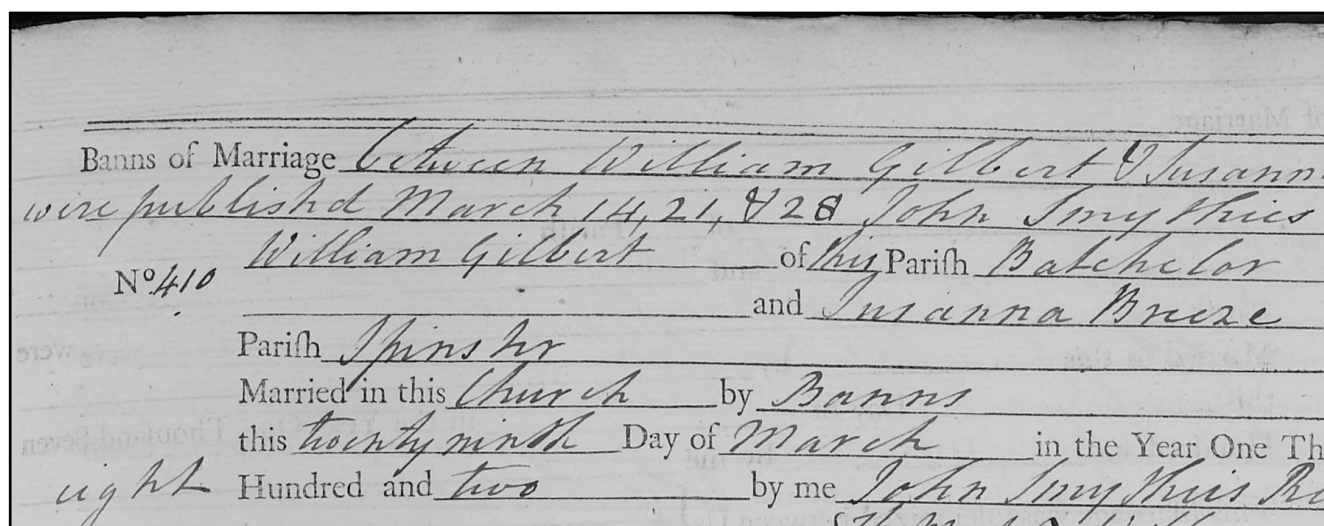 Banns of Marriage between William Gilbert & Susann
were published March 14, 21, & 28 John Smythies
William Gilbert of this Pariſh Batchelor
No 410
and Susanna Breeze
Pariſh Spinster
Married in this Church by Banns
this twenty ninth Day of March in the Year One Th
eight Hundred and two by me John Smythies Re